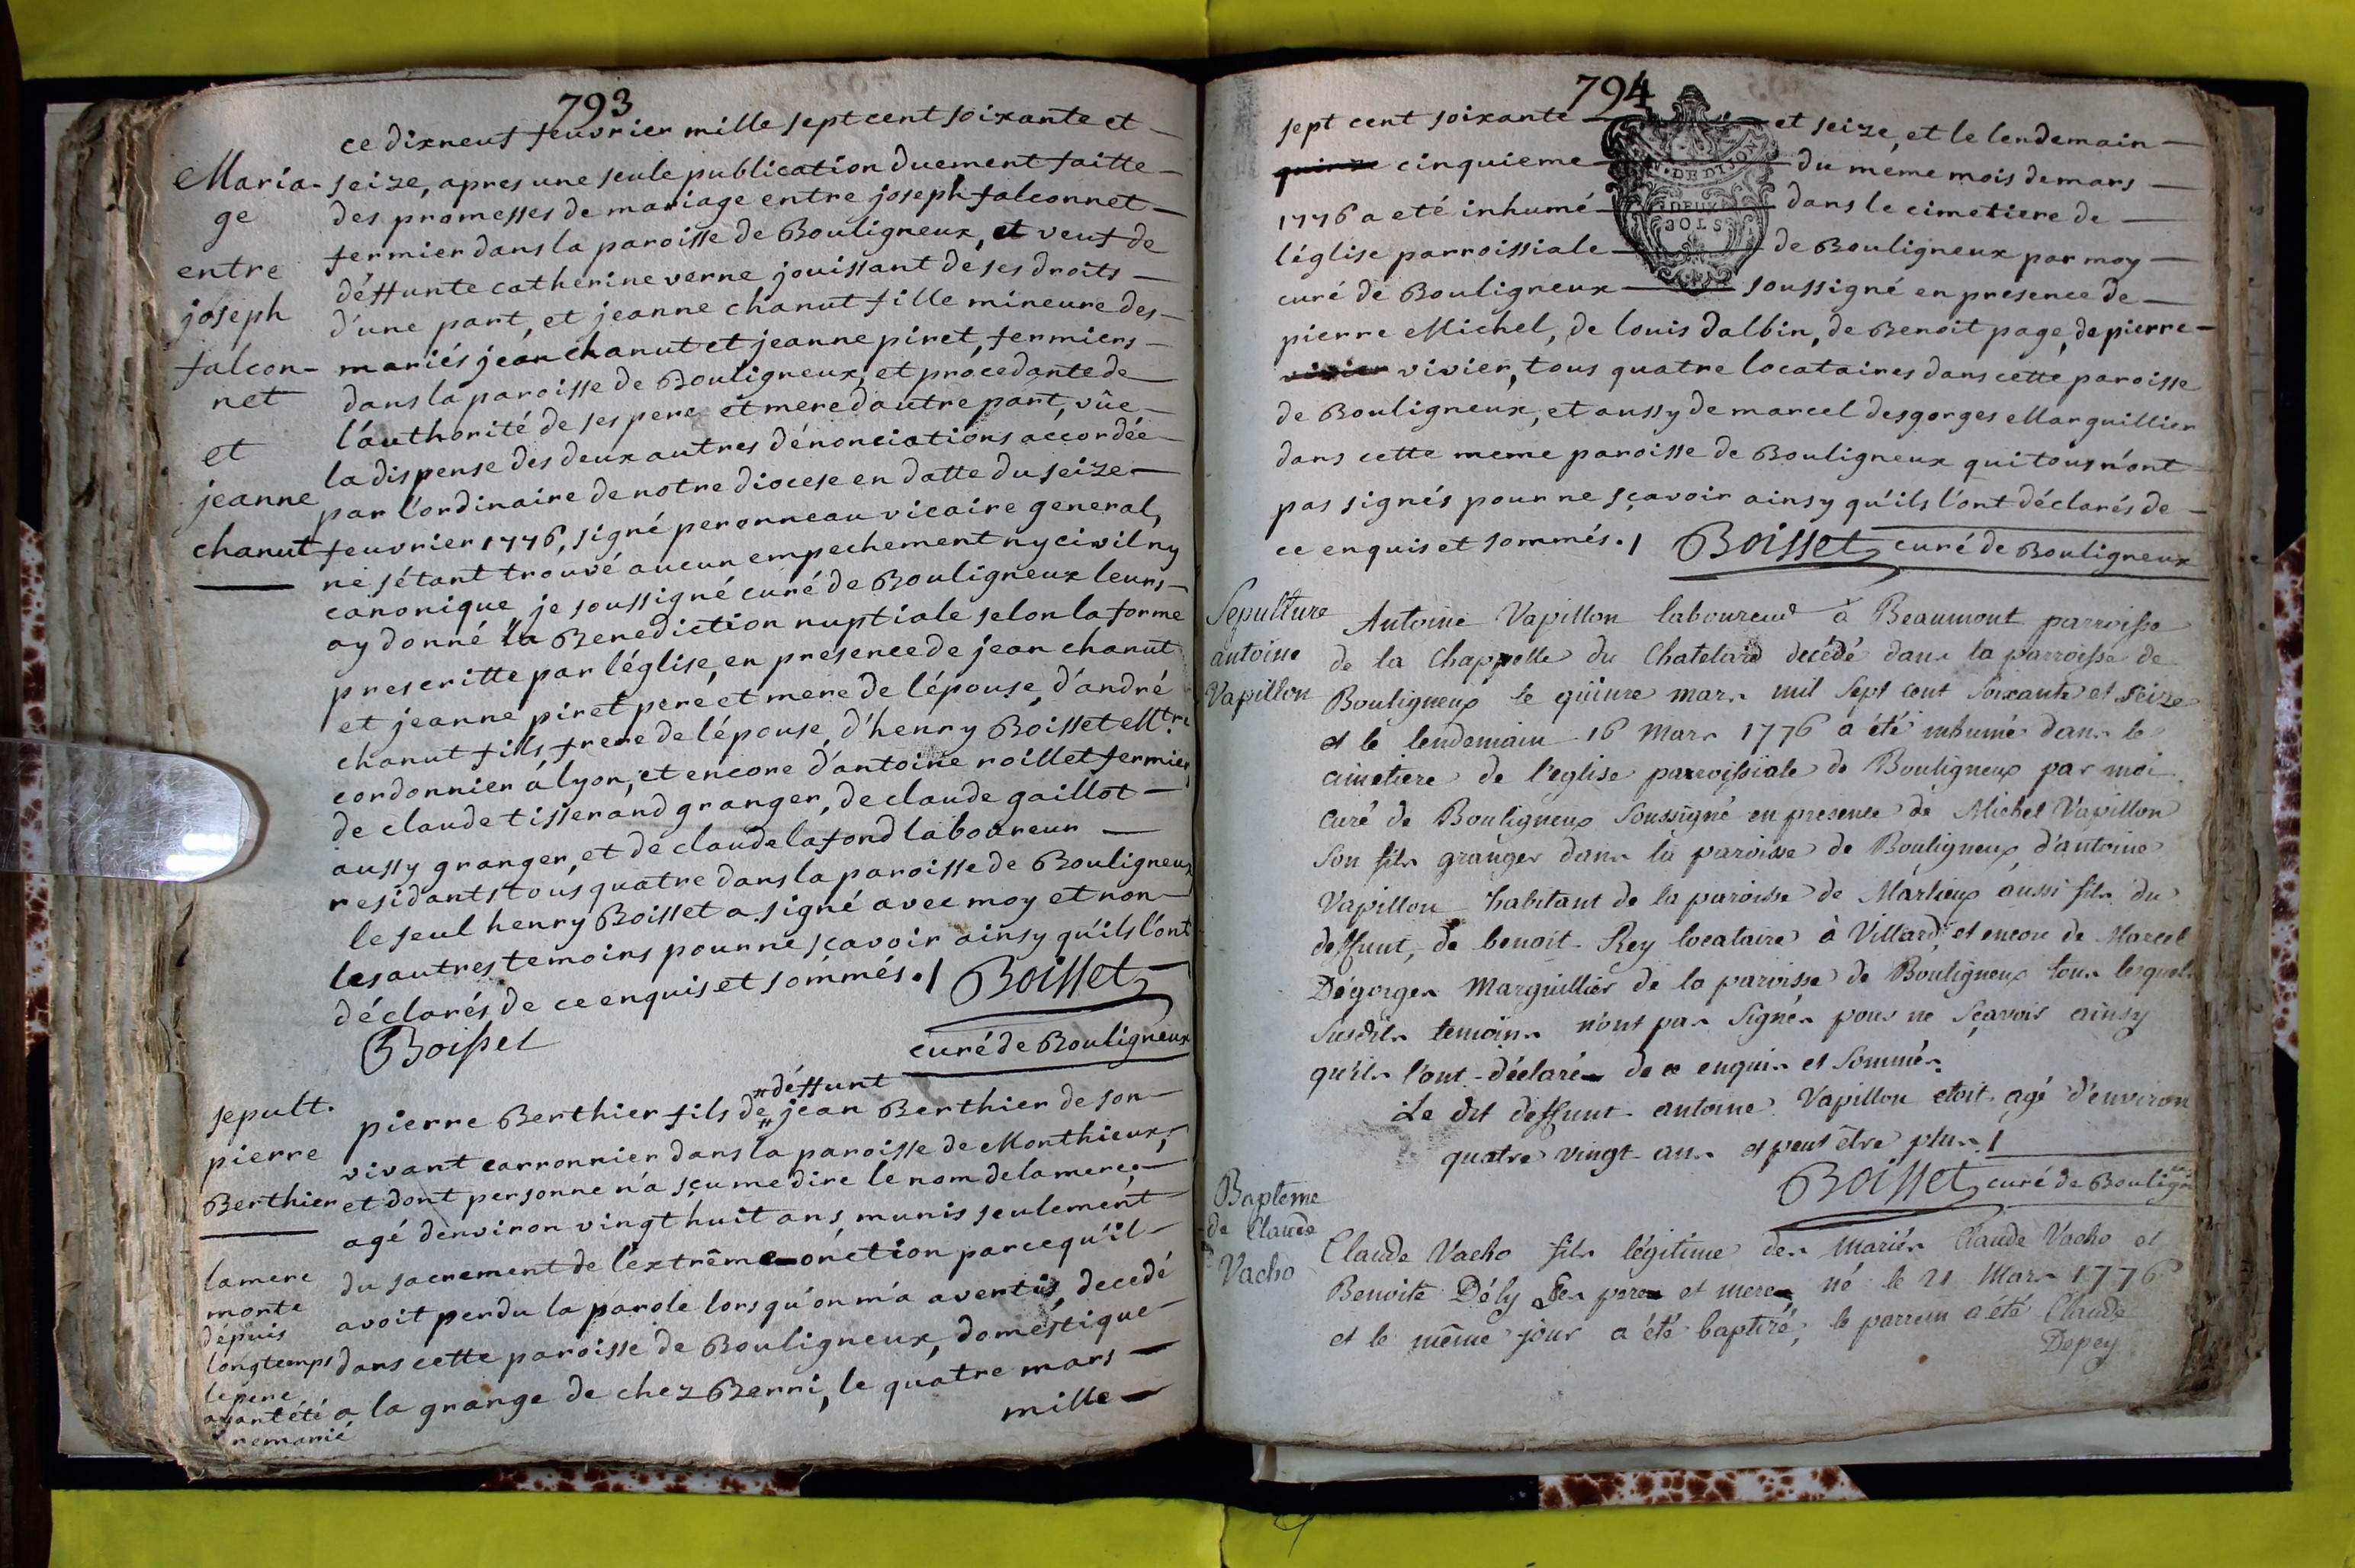 793
ce dixneuf feuvrier mille sept cent soixante et
Maria- seize, apres une seule publication duement faitte
ge des promesses de mariage entre joseph falconnet
fermier dans la paroisse de Bouligneux, et veuf de
entre déffunte catherine verne jouissant de ses droits
joseph d'une part, et jeanne chanut fille mineure des
falcon- mariés jean chanut et jeanne piret, fermiers
net dans la paroisse de Bouligneux, et procedante de
l'authorité de ses pere et mere d'autre part, vûe
et la dispense des deux autres dénonciations accordée
jeanne par l'ordinaire de notre diocese en datte du seize
chanut feuvrier 1776, signé peronneau vicaire general,
ne s'étant trouvé aucun empechement ny civil ny
canonique je soussigné curé de Bouligneux leurs
ay donné la Benediction nuptiale selon la forme
prescritte par l'église, en presence de jean chanut
et jeanne piret pere et mere de l'épouse, d'andré
chanut fils frere de l'épouse, d'henry Boisset Mtre
cordonnier à lyon, et encore d'antoine roillet fermier,
de claude tisserand granger, de claude gaillot
aussy granger, et de claude lafond laboureur
residants tous quatre dans la paroisse de Bouligneux
le seul henry Boisset a signé avec moy et non
les autres temoins pour ne sçavoir ainsy qu'ils l'ont
déclarés de ce enquis et sommés./ Boisset
Boisset curé de Bouligneux
# déffunt
sepult. pierre Berthier fils de # jean Berthier de son
pierre vivant carronnier dans la paroisse de Monthieux,
Berthier et dont personne n'a sçu me dire le nom de la mere,
agé denviron vingt huit ans, munis seulement
la mere du sacrement de l'extrême-onction parcequ'il
morte avoit perdu la parole lorsqu'on m'a avertis, decedé
dépuis
longtemps dans cette paroisse de Bouligneux, doméstique
le pere
ayant été a la grange de chez Berri, le quatre mars
remarié
mille
794
sept cent soixante et seize, et le lendemain
quinze cinquieme du meme mois de mars
1776 a eté inhumé dans le cimetiere de
l'église parroissiale de Bouligneux par moy
curé de Bouligneux soussigné en presence de
DE DIJON
DEUX
SOLS
pierre Michel, de louis dalbin, de Benoit page, de pierre
vivier vivier, tous quatre locataires dans cette paroisse
de Bouligneux, et aussy de marcel desgorges Marguillier
dans cette meme paroisse de Bouligneux qui tous n'ont
pas signés pour ne sçavoir ainsy qu'ils l'ont déclarés de
ce enquis et sommés./ Boisset curé de Bouligneux
Sepulture Antoine Vapillon laboureur à Beaumont parroisse
antoine de la Chappelle du Chatelard decédé dans la parroisse de
Vapillon Bouligneux le quinze mars mil sept cent soixante et seize
et le lendemain 16 Mars 1776 a été inhumé dans le
cimetiere de l'eglise parroissiale de Bouligneux par moi
curé de Bouligneux soussigné en presence de Michel Vapillon
son fils granger dans la paroisse de Bouligneux, d'antoine
Vapillon habitant de la paroisse de Marlieux aussi fils du
deffunt, de benoit Rey locataire à Villard, et encore de Marcel
Dégorges Marguillier de la paroisse de Bouligneux tous lesquels
susdits temoins n'ont pas signés pour ne sçavoir ainsy
qu'ils l'ont déclarés de ce enquis et sommés.
Le dit deffunt antoine Vapillon etoit agé d'environ
quatre vingt ans et peut être plus./
Boisset curé de Bouligneux
Baptême
de Claude
Vacho
Claude Vacho fils légitime des mariés Claude Vacho et
Benoite Dély ses pere et mere né le 21 Mars 1776
et le même jour a été baptisé, le parrein a été Claude
Depey